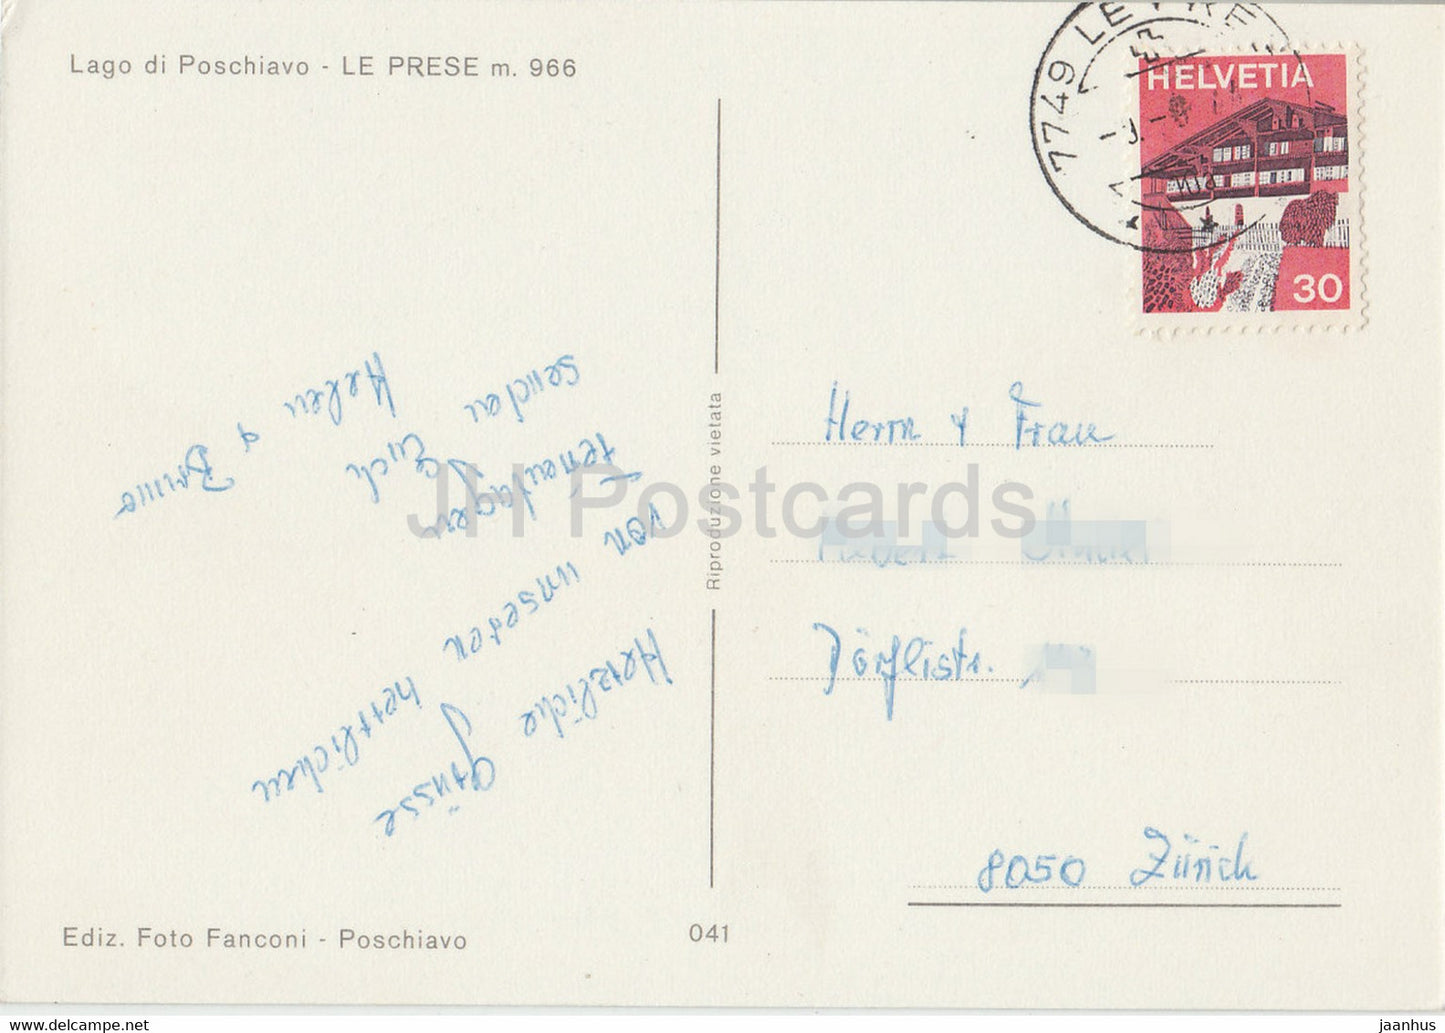 Lago di Poschiavo - LE PRESE m. 966
7749 LE PRESE
HELVETIA
30
Herzliche Grüsse
von unseren herrlichen
Ferientagen
senden Euch
Helen & Bruno
Reproduzione vietata
Herrn & Frau
Dörflistr.
8050 Zürich
Ediz. Foto Fanconi - Poschiavo
041
JH Postcards
jaanhus www.delcampe.net